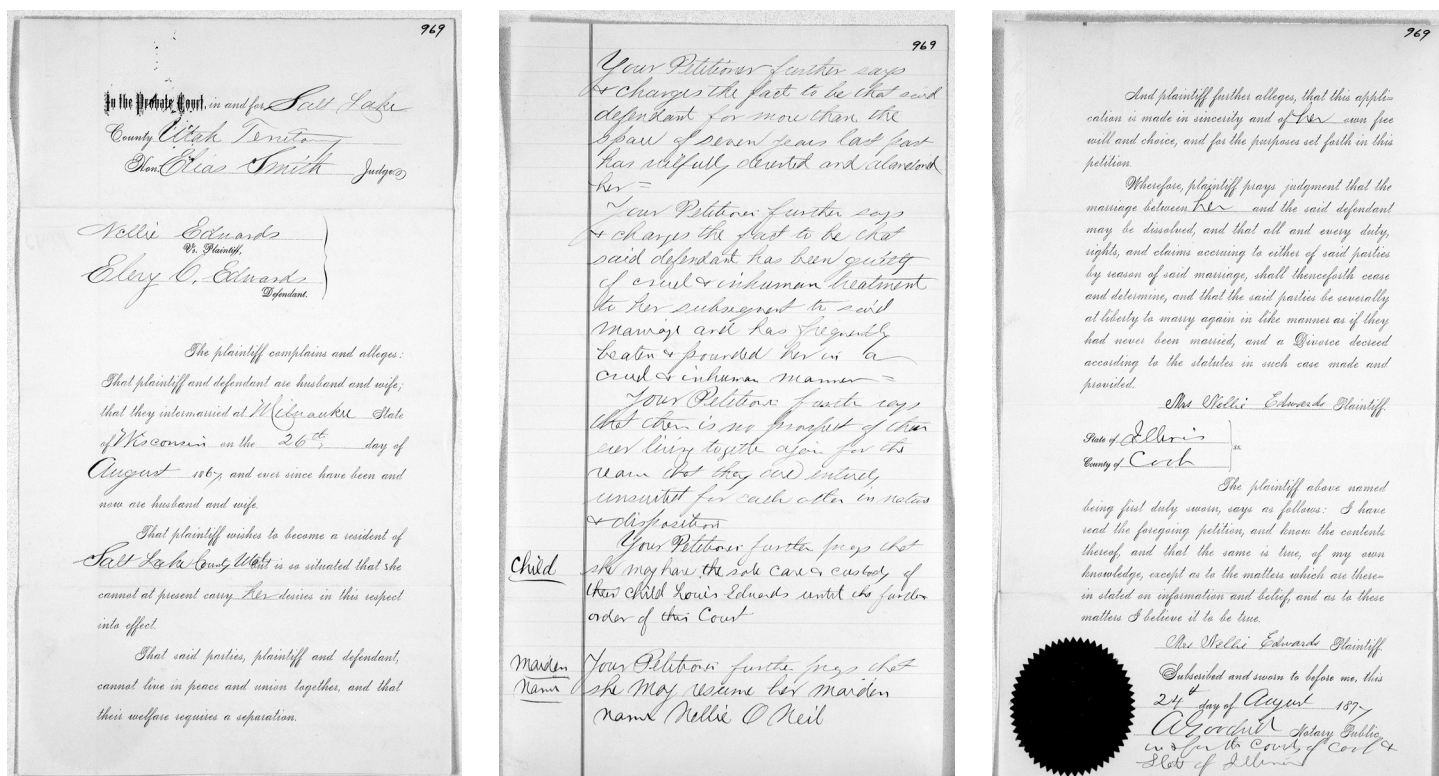 969
In the Probate Court, in and for Salt Lake
County Utah Territory
Hon. Elias Smith Judge
Nellie Edwards
Vs. Plaintiff,
Elery C. Edwards
Defendant.
The plaintiff complains and alleges:
That plaintiff and defendant are husband and wife;
that they intermarried at Milwaukee State
of Wisconsin on the 26th day of
August 1867, and ever since have been and
now are husband and wife.
That plaintiff wishes to become a resident of
Salt Lake County Utah is so situated that she
cannot at present carry her desires in this respect
into effect.
That said parties, plaintiff and defendant,
cannot live in peace and union together, and that
their welfare requires a separation.
969
Your Petitioner further says
& charges the fact to be that said
defendant for more than the
space of seven years last past
has wilfully deserted and abandoned
her =
Your Petitioner further says
& charges the fact to be that
said defendant has been guilty
of cruel & inhuman treatment
to her subsequent to said
marriage and has frequently
beaten & pounded her in a
cruel & inhuman manner =
Your Petitioner further says
that there is no prospect of them
ever living together again for the
reason that they are entirely
unsuited for each other in nature
& disposition
Your Petitioner further prays that
Child she may have the sole care & custody of
their child Louis Edwards until the further
order of this Court
Maiden Your Petitioner further prays that
Name she may resume her maiden
name Nellie O Neil
969
And plaintiff further alleges, that this appli-
cation is made in sincerity and of her own free
will and choice, and for the purposes set forth in this
petition.
Wherefore, plaintiff prays judgment that the
marriage between her and the said defendant
may be dissolved, and that all and every duty,
rights, and claims accruing to either of said parties
by reason of said marriage, shall thenceforth cease
and determine, and that the said parties be severally
at liberty to marry again in like manner as if they
had never been married, and a Divorce decreed
according to the statutes in such case made and
provided.
Mrs Nellie Edwards Plaintiff.
State of Illinois
County of Cook ss.
The plaintiff above named
being first duly sworn, says as follows: I have
read the foregoing petition, and know the contents
thereof, and that the same is true, of my own
knowledge, except as to the matters which are there-
in stated on information and belief, and as to these
matters I believe it to be true.
Mrs Nellie Edwards Plaintiff.
Subscribed and sworn to before me, this
24th day of August 1877
A Goodrich Notary Public,
in & for the County of Cook &
State of Illinois